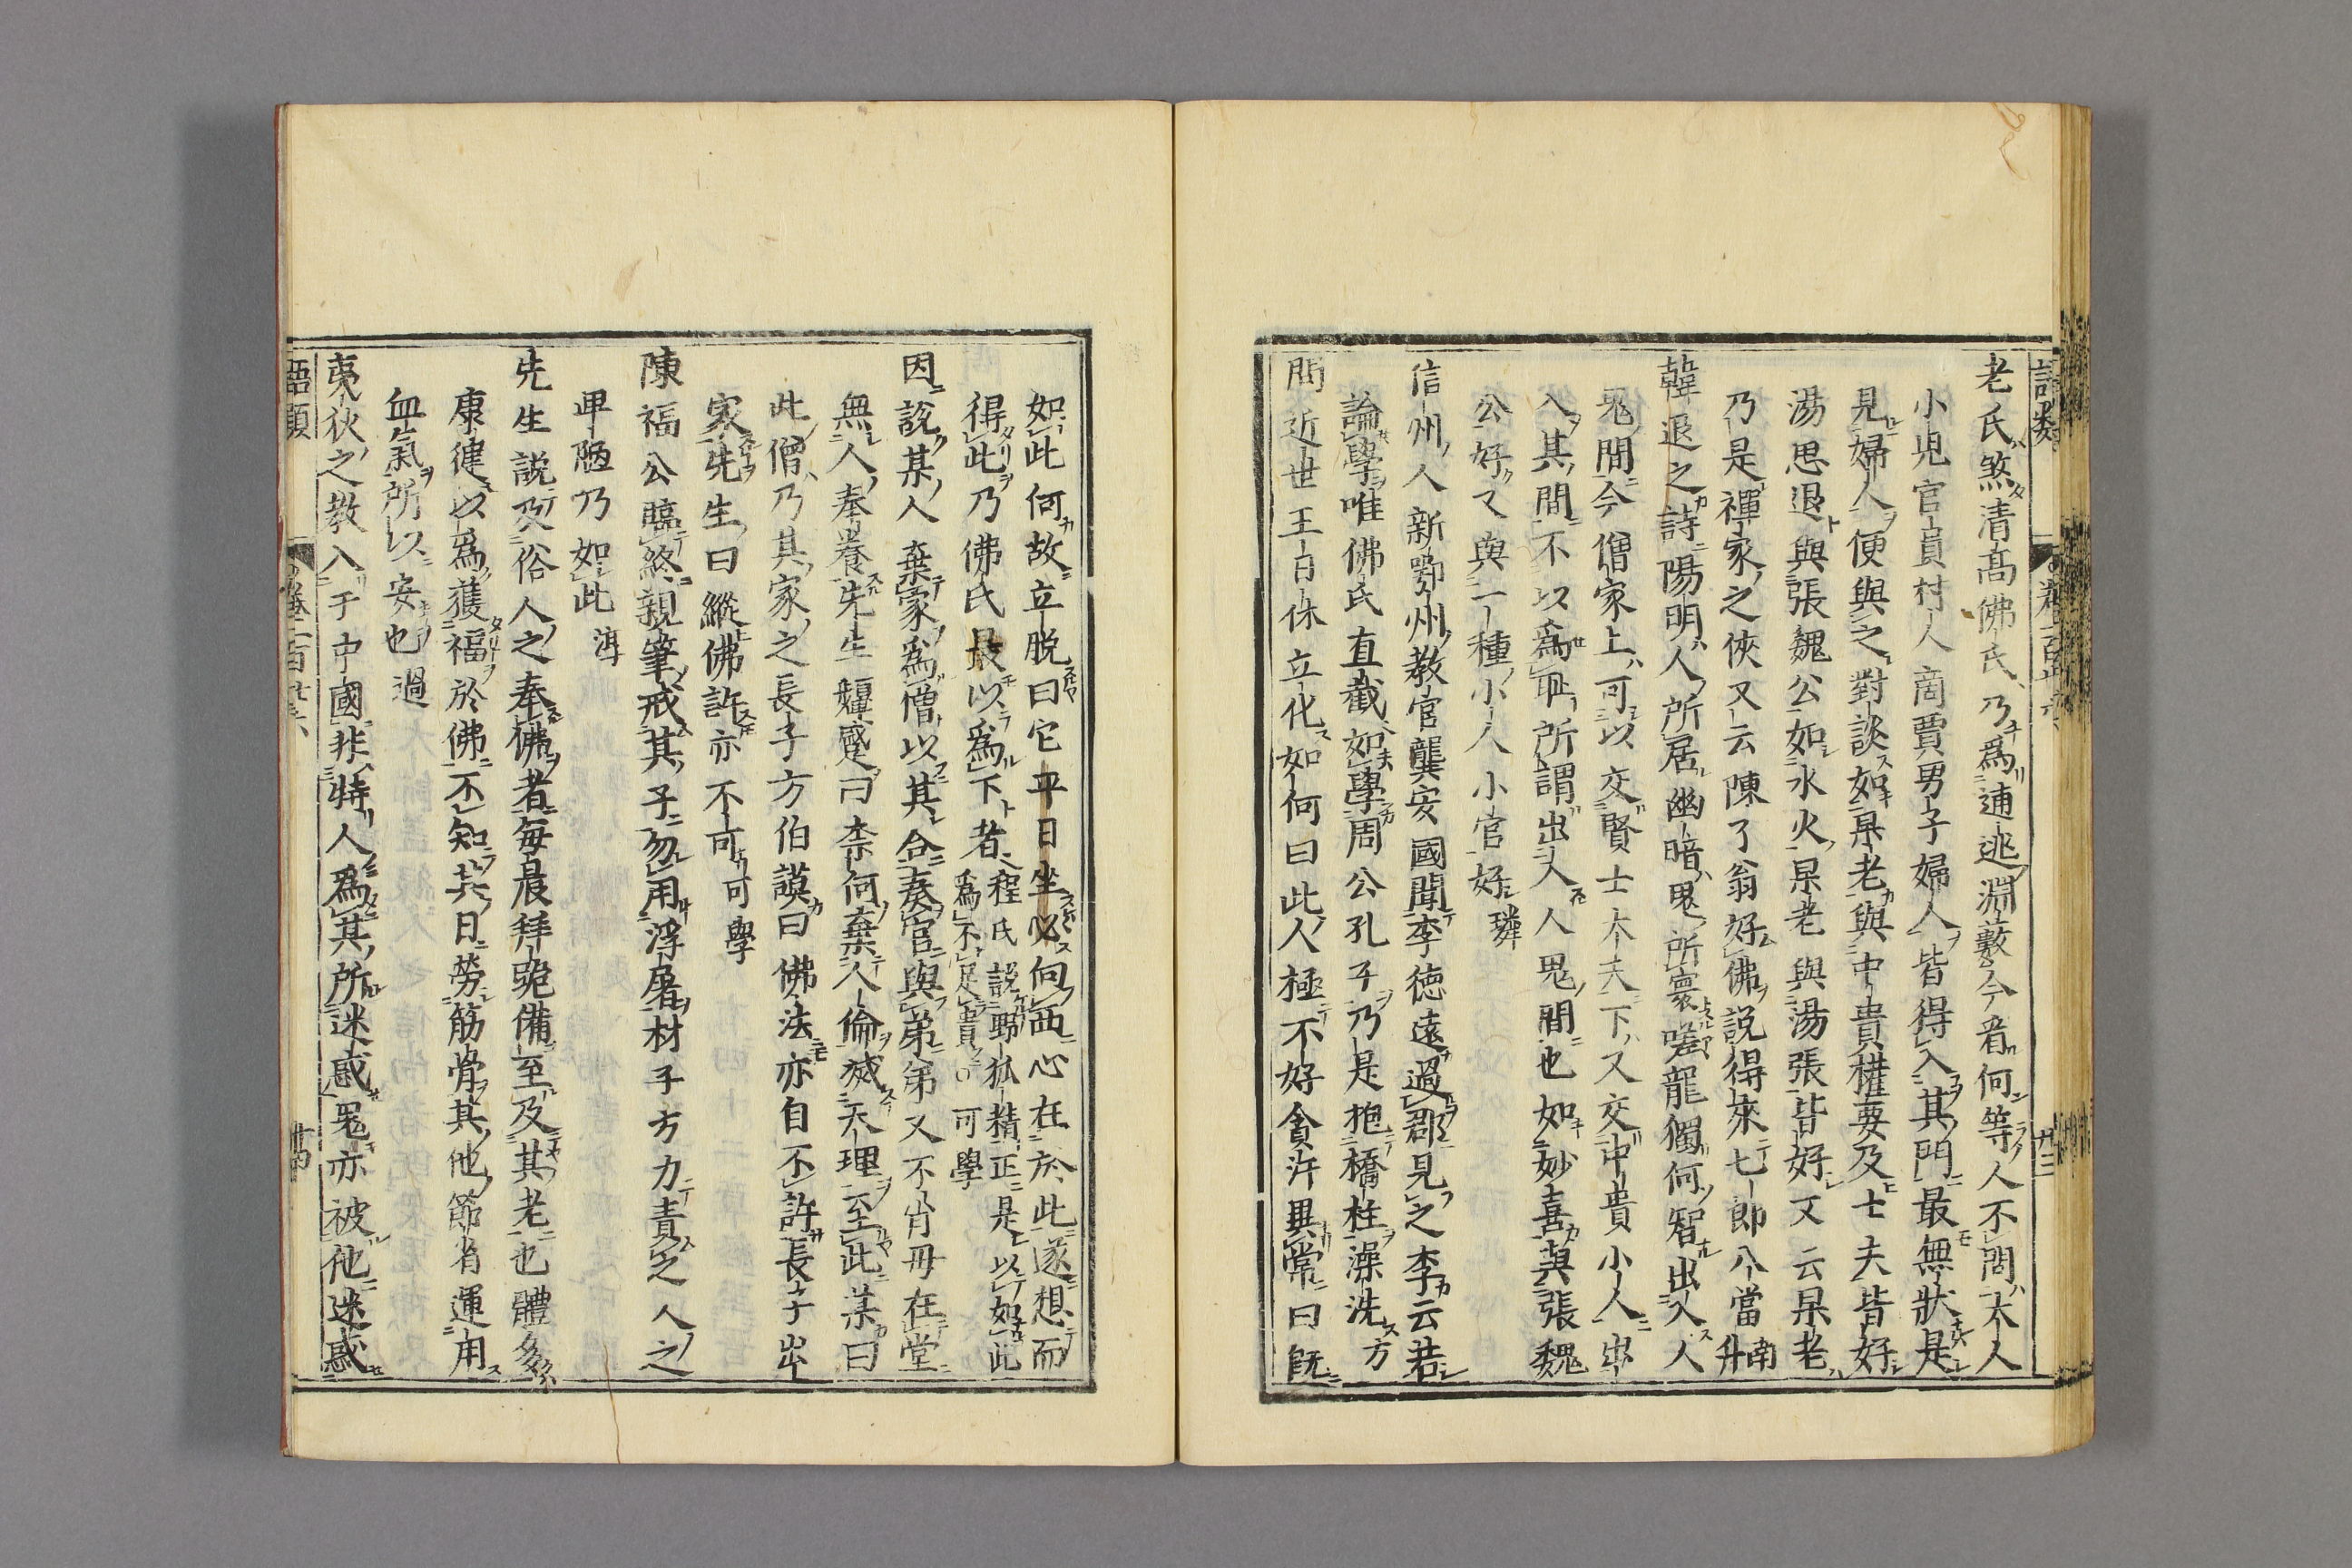 老氏煞清高佛氏乃爲逋逃淵藪今看何等人不問大人
小児官員村人商賈男子婦人皆得入其門最無狀是
見婦人便與之對談如杲老與中貴權要及士夫皆好
湯思退與張魏公如水火杲老與湯張皆好又云杲老
乃是禪家之俠又云陳了翁好佛說得來七郎八當南升
韓退之詩陽明人所居幽暗鬼所寰嗟龍獨何智出入人
鬼間今僧家上可以交賢士大夫下又交中貴小人出
入其間不以爲恥所謂出入人鬼間也如妙喜與張魏
公好又與一種小人小官好璘
信州人新鄂州教官龔安國聞李德遠過郡見之李云若
論學唯佛氏直截如學周公孔子乃是抱橋柱澡洗方
問近世王日休立化如何曰此人極不好貪汚異常曰既
如此何故立脫曰它平日坐必向西心在於此遂想而
得此乃佛氏最以爲下者程氏說野狐精正是以如此爲不足貴○可學
因說某人棄家爲僧以其合奏官與弟弟又不肖母在堂
無人奉養先生顰蹙曰柰何棄人倫滅天理至此某曰
此僧乃其家之長子方伯謨曰佛法亦自不許長子出
家先生曰縱佛許亦不可可學
陳福公臨終親筆戒其子勿用浮屠材子方力責之人之
卑陋乃如此淳
先生說及俗人之奉佛者每晨拜跪備至及其老也體多
康健以爲獲福於佛不知其日勞筋骨其他節省運用
血氣所以安也過
夷狄之教入于中國非特人爲其所迷惑鬼亦被他迷惑
語類
卷百廿六
廿四